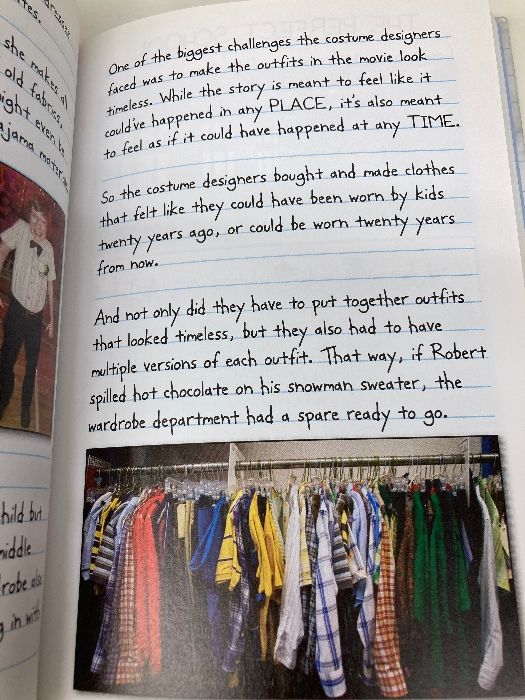 she makes al
old fabrics,
ight even b
ajama mater
hild but
middle
robe als
g in with
One of the biggest challenges the costume designers
faced was to make the outfits in the movie look
timeless. While the story is meant to feel like it
could've happened in any PLACE, it's also meant
to feel as if it could have happened at any TIME.
So the costume designers bought and made clothes
that felt like they could have been worn by kids
twenty years ago, or could be worn twenty years
from now.
And not only did they have to put together outfits
that looked timeless, but they also had to have
multiple versions of each outfit. That way, if Robert
spilled hot chocolate on his snowman sweater, the
wardrobe department had a spare ready to go.